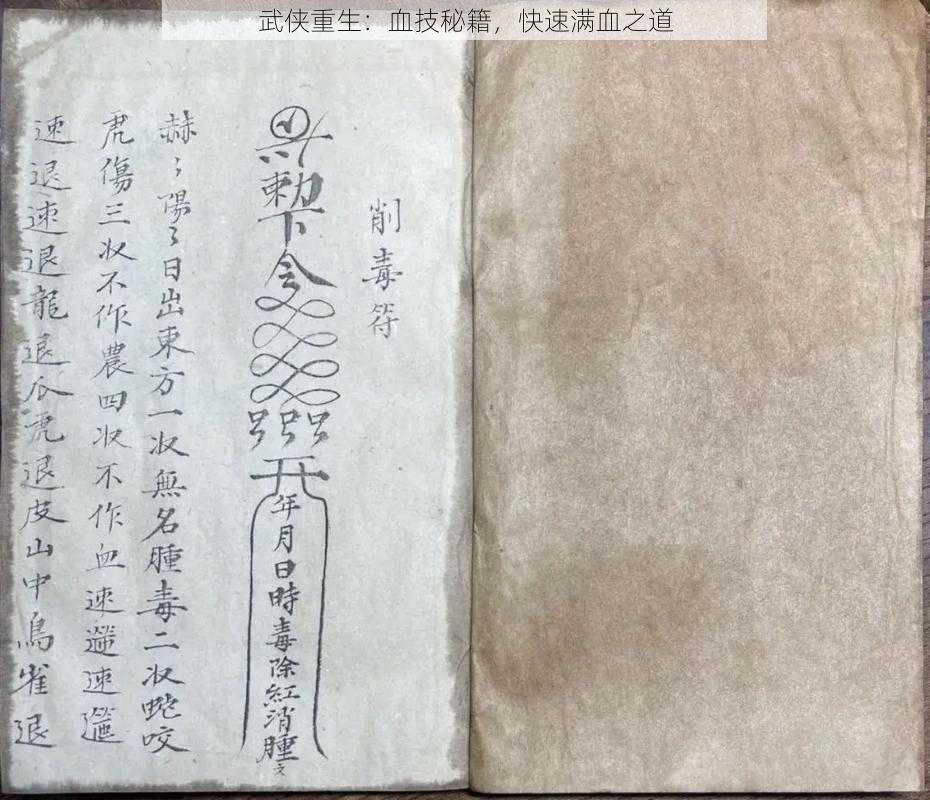 武侠重生：血技秘籍，快速满血之道
削毒符
勅下令
年月日時毒除紅消腫
赫〻陽〻日出東方一收無名腫毒二收蛇咬
虎傷三收不作農四收不作血速速
速退速退龍退爪虎退皮山中鳥雀退